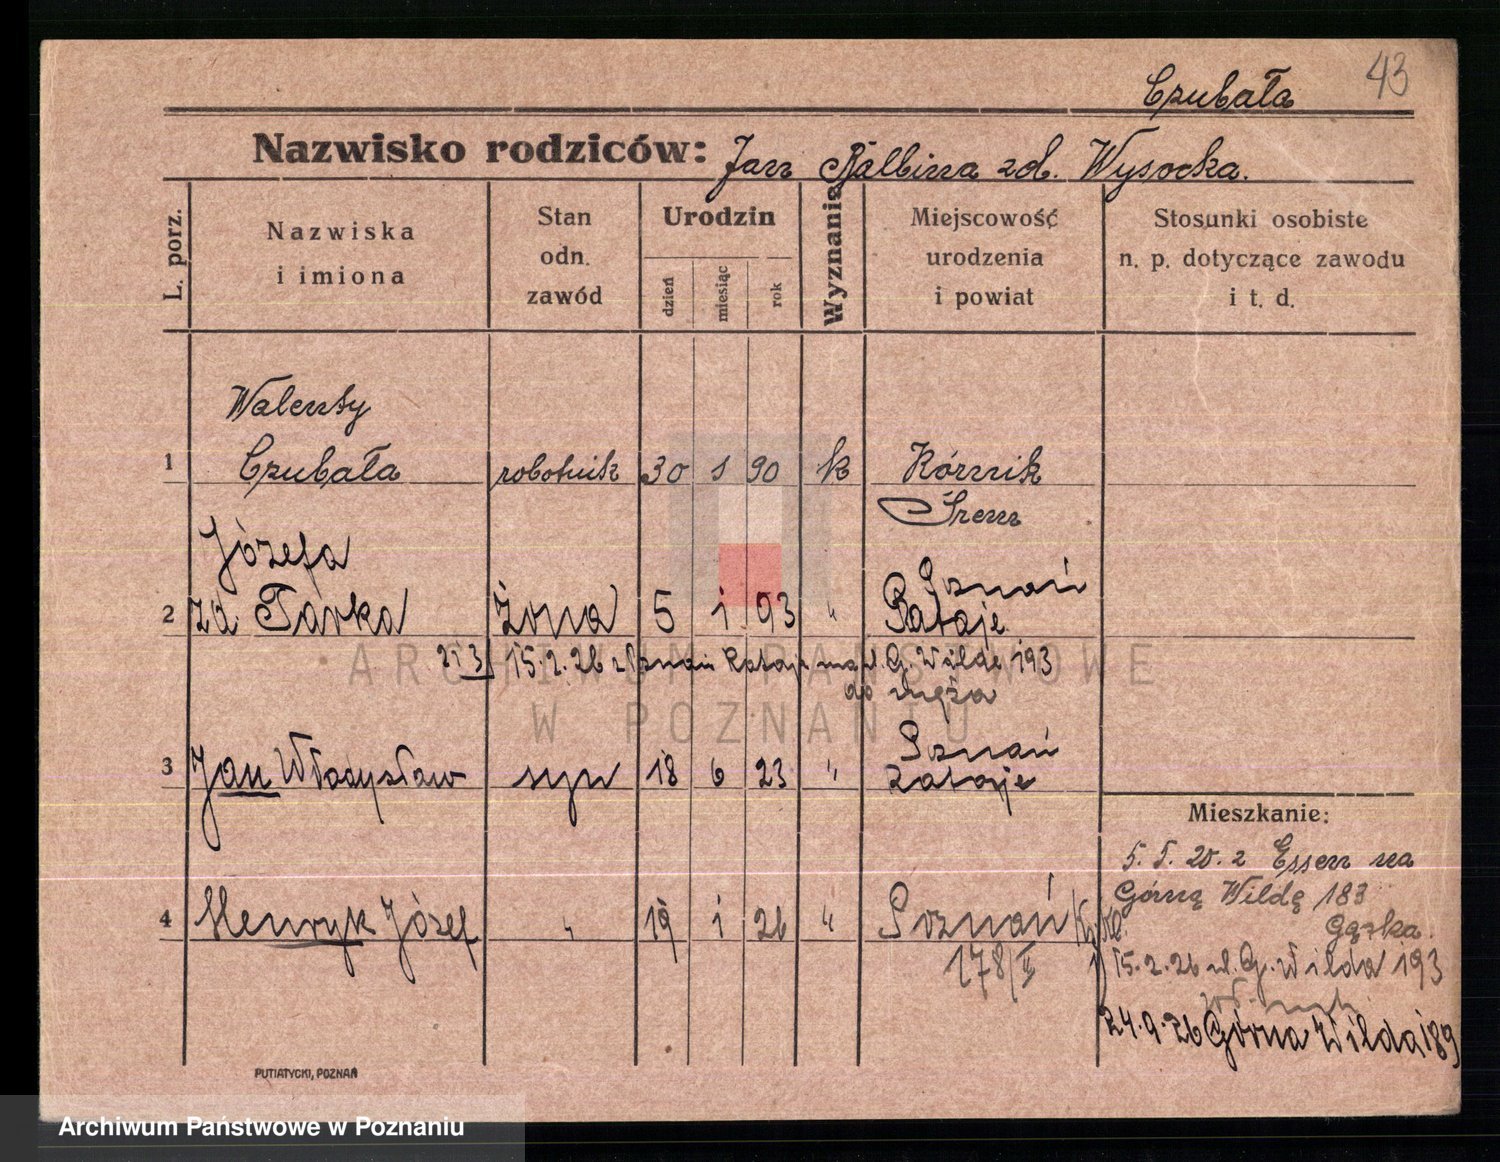 43
Czubała
Nazwisko rodziców: Jan Balbina zd. Wysocka.
L. porz.
Nazwiska
i imiona
Stan
odn.
zawód
Urodzin
dzień
miesiąc
rok
Wyznanie
Miejscowość
urodzenia
i powiat
Stosunki osobiste
n. p. dotyczące zawodu
i t. d.
Walenty
1 Czubała robotnik 30 1 90 k Kórnik
Śrem
Józefa
Poznań
2 zd Tavka Żona 5 i 93 " Rataje
15.2.26 z Poznań Rataje na ul. G. Wilde 193
do męża
Poznań
3 Jan Władysław syn 18 6 23 " Rataje
Mieszkanie:
5. 5. 20. z Essen na
Górną Wildę 183
4 Henryk Józef " 19 i 26 " Poznań
178/II
Gązka.
15.2.26 ul. G. Wilda 193
24.9.26 Górna Wilda 189
PUTIATYCKI, POZNAŃ
ARCHIWUM PAŃSTWOWE
W POZNANIU
Archiwum Państwowe w Poznaniu